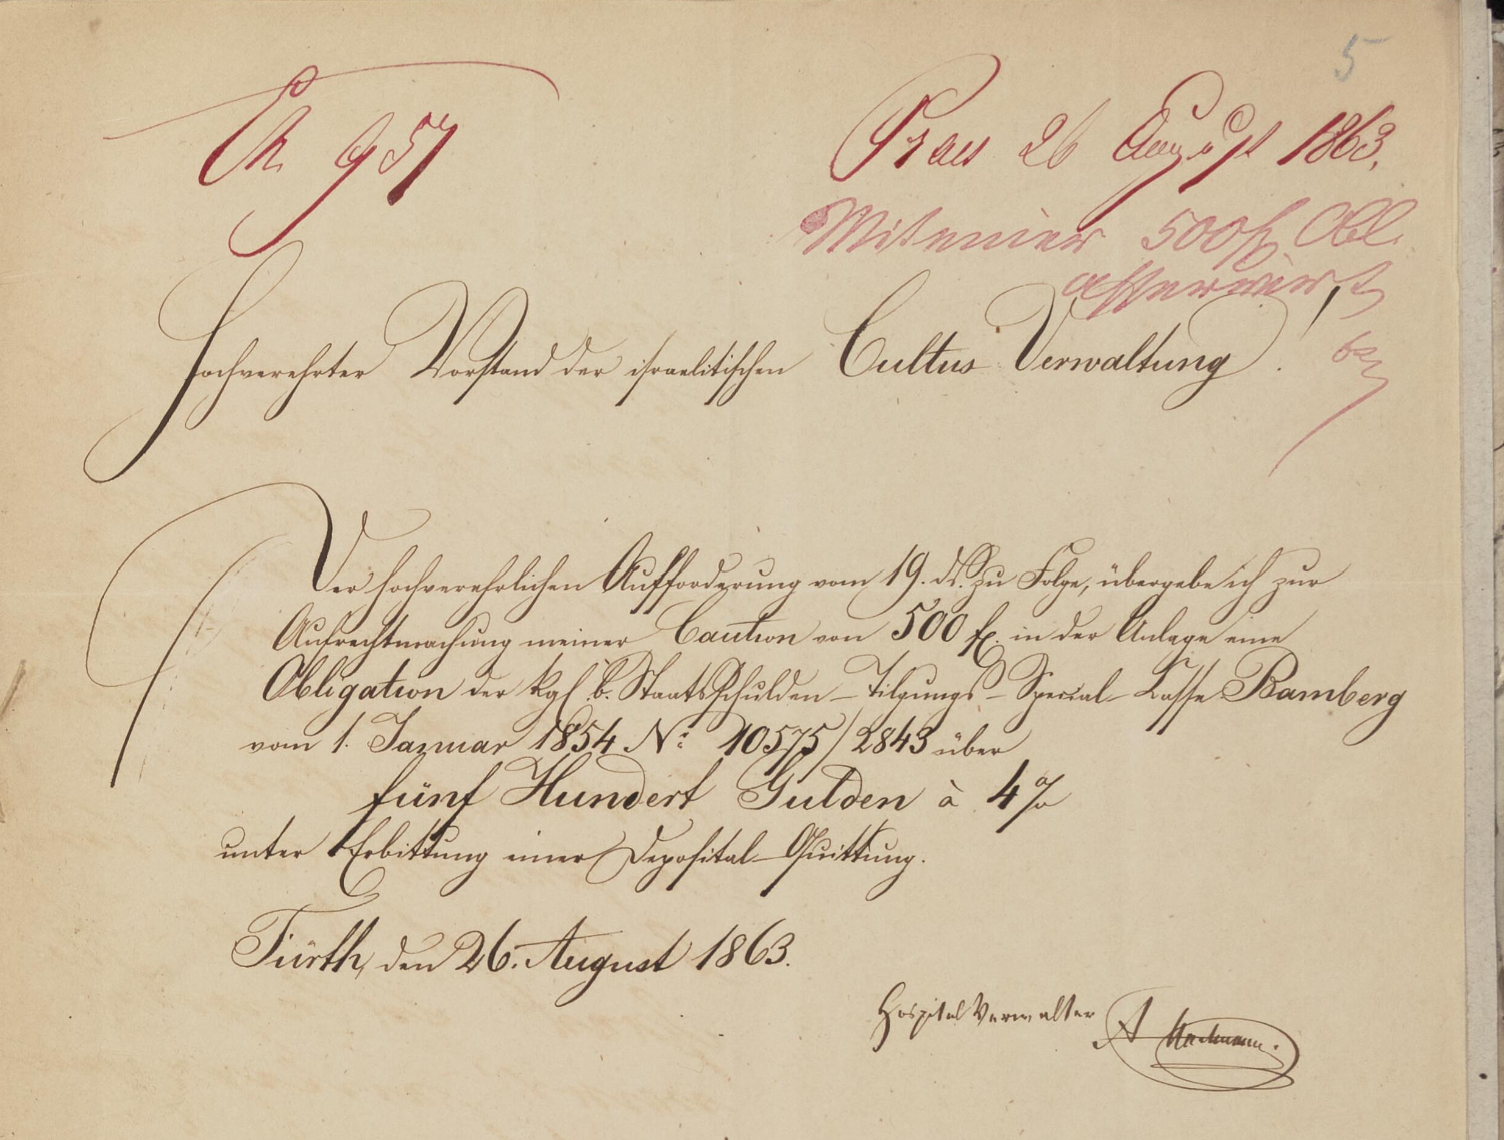 5
957
Praes 26 August 1863.
Mit einer 500 f Obl.
Hochverehrter Vorstand der israelitischen Cultus Verwaltung!
Der hochverehrlichen Aufforderung vom 19. ds. zu Folge, übergebe ich zur
Aufrechtmachung meiner Caution von 500 f. in der Anlage eine
Obligation der kgl. b. Staatsschulden-Tilgungs-Special-Casse Bamberg
vom 1. Januar 1854 No. 10575/2843 über
fünf Hundert Gulden à 4%
unter Erbittung einer Deposital-Quittung.
Fürth, den 26. August 1863.
Hospital Verwalter